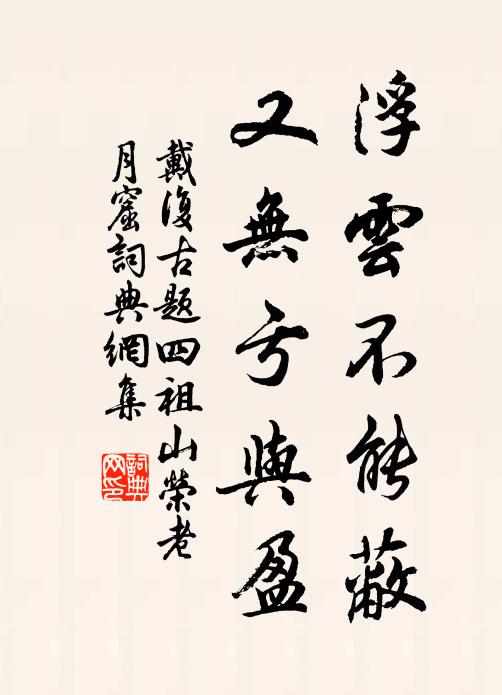 浮雲不能蔽
又無亏與盈
戴復古题四祖山榮老
月窟詞典網集
詞典网印